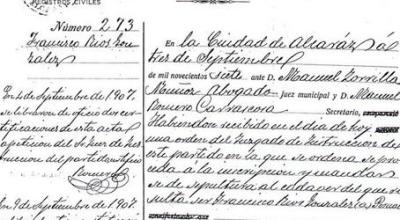 REGISTROS CIVILES
Número 273
Francisco Rios Gon-
zalez
En 4 de Septiembre de 1907.
se libraron de oficio dos cer-
tificaciones de esta acta
a peticion del Sr. Juez de Ins-
truccion del partido
Romero
En 9 de Septiembre de 1907.
En la Ciudad de Alcaráz á
tres de Septiembre
de mil novecientos siete ante D. Manuel Zorrilla
Muñoz Abogado juez municipal y D. Manuel
Romero Carrascosa Secretario,
Habiendose recibido en el dia de hoy
una orden del Juzgado de Instruccion de
este partido en la que se ordena se pro-
ceda a la inscripcion y mandar
se de sepultura al cadaver del que re-
sulta ser Francisco Rios Gonzalez